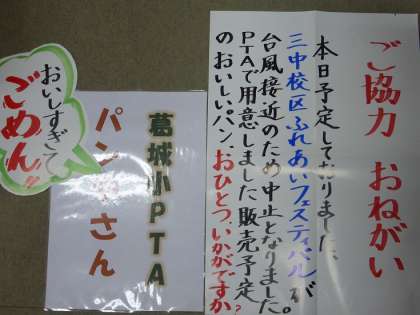 ご協力 おねがい
本日予定しておりました、
三中校区ふれあいフェスティバルが
台風接近のため中止となりました。
PTAで用意しました販売予定
のおいしいパン、おひとついかがですか?
葛城小PTA
パンやさん
おいしすぎて
ごめん!!